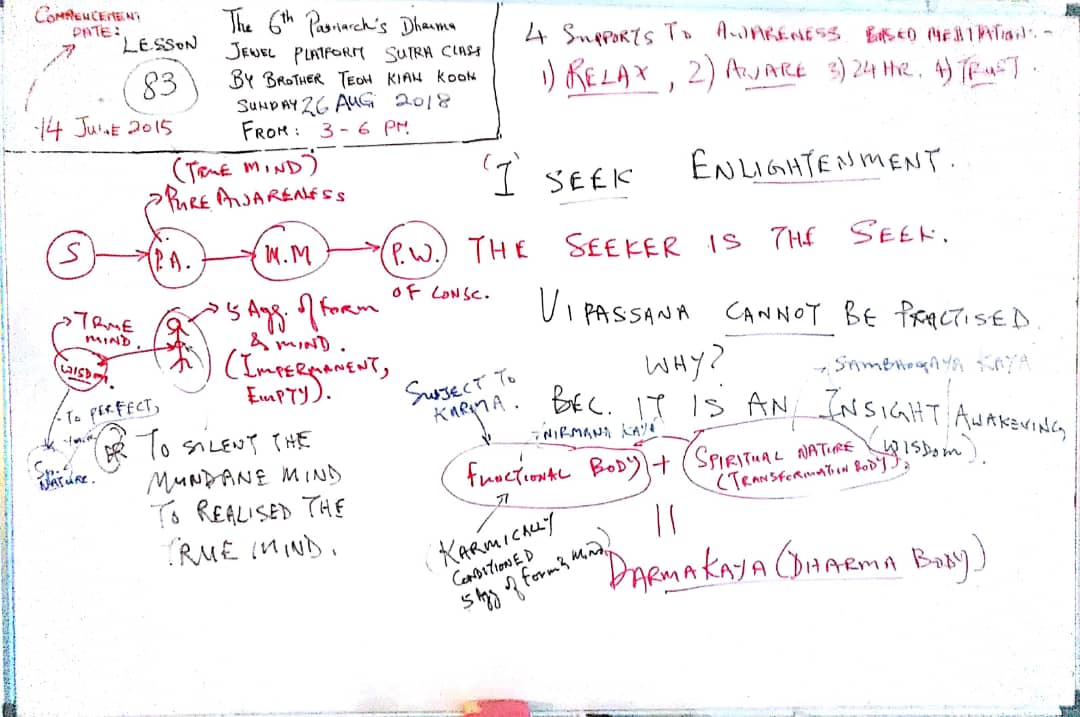 COMMENCEMENT
DATE:
LESSON
83
14 JUNE 2015
The 6th Patriarch's Dharma
JEWEL PLATFORM SUTRA CLASS
BY BROTHER TEOH KIAN KOON
SUNDAY 26 AUG 2018
FROM: 3 - 6 PM
4 SUPPORTS TO AWARENESS BASED MEDITATION:-
1) RELAX, 2) AWARE 3) 24 HR. 4) TRUST.
(TRUE MIND)
PURE AWARENESS
S
P.A.
M.M
P.W.
OF CONSC.
'I' SEEK ENLIGHTENMENT.
THE SEEKER IS THE SEEK.
VIPASSANA CANNOT BE PRACTISED.
WHY?
SAMBHOGAYA KAYA
BEC. IT IS AN INSIGHT/AWAKENING
(WISDOM).
TRUE
MIND.
WISDOM
5 Agg. of form
& MIND.
(IMPERMANENT,
EMPTY).
TO PERFECT,
NATURE.
OR
TO SILENT THE
MUNDANE MIND
TO REALISED THE
TRUE MIND.
SUBJECT TO
KARMA.
NIRMANA KAYA
FUNCTIONAL BODY + (SPIRITUAL NATURE
(TRANSFORMATION BODY)).
(KARMICALLY
CONDITIONED
5 Agg of form & mind)
=
DARMAKAYA (DHARMA BODY)